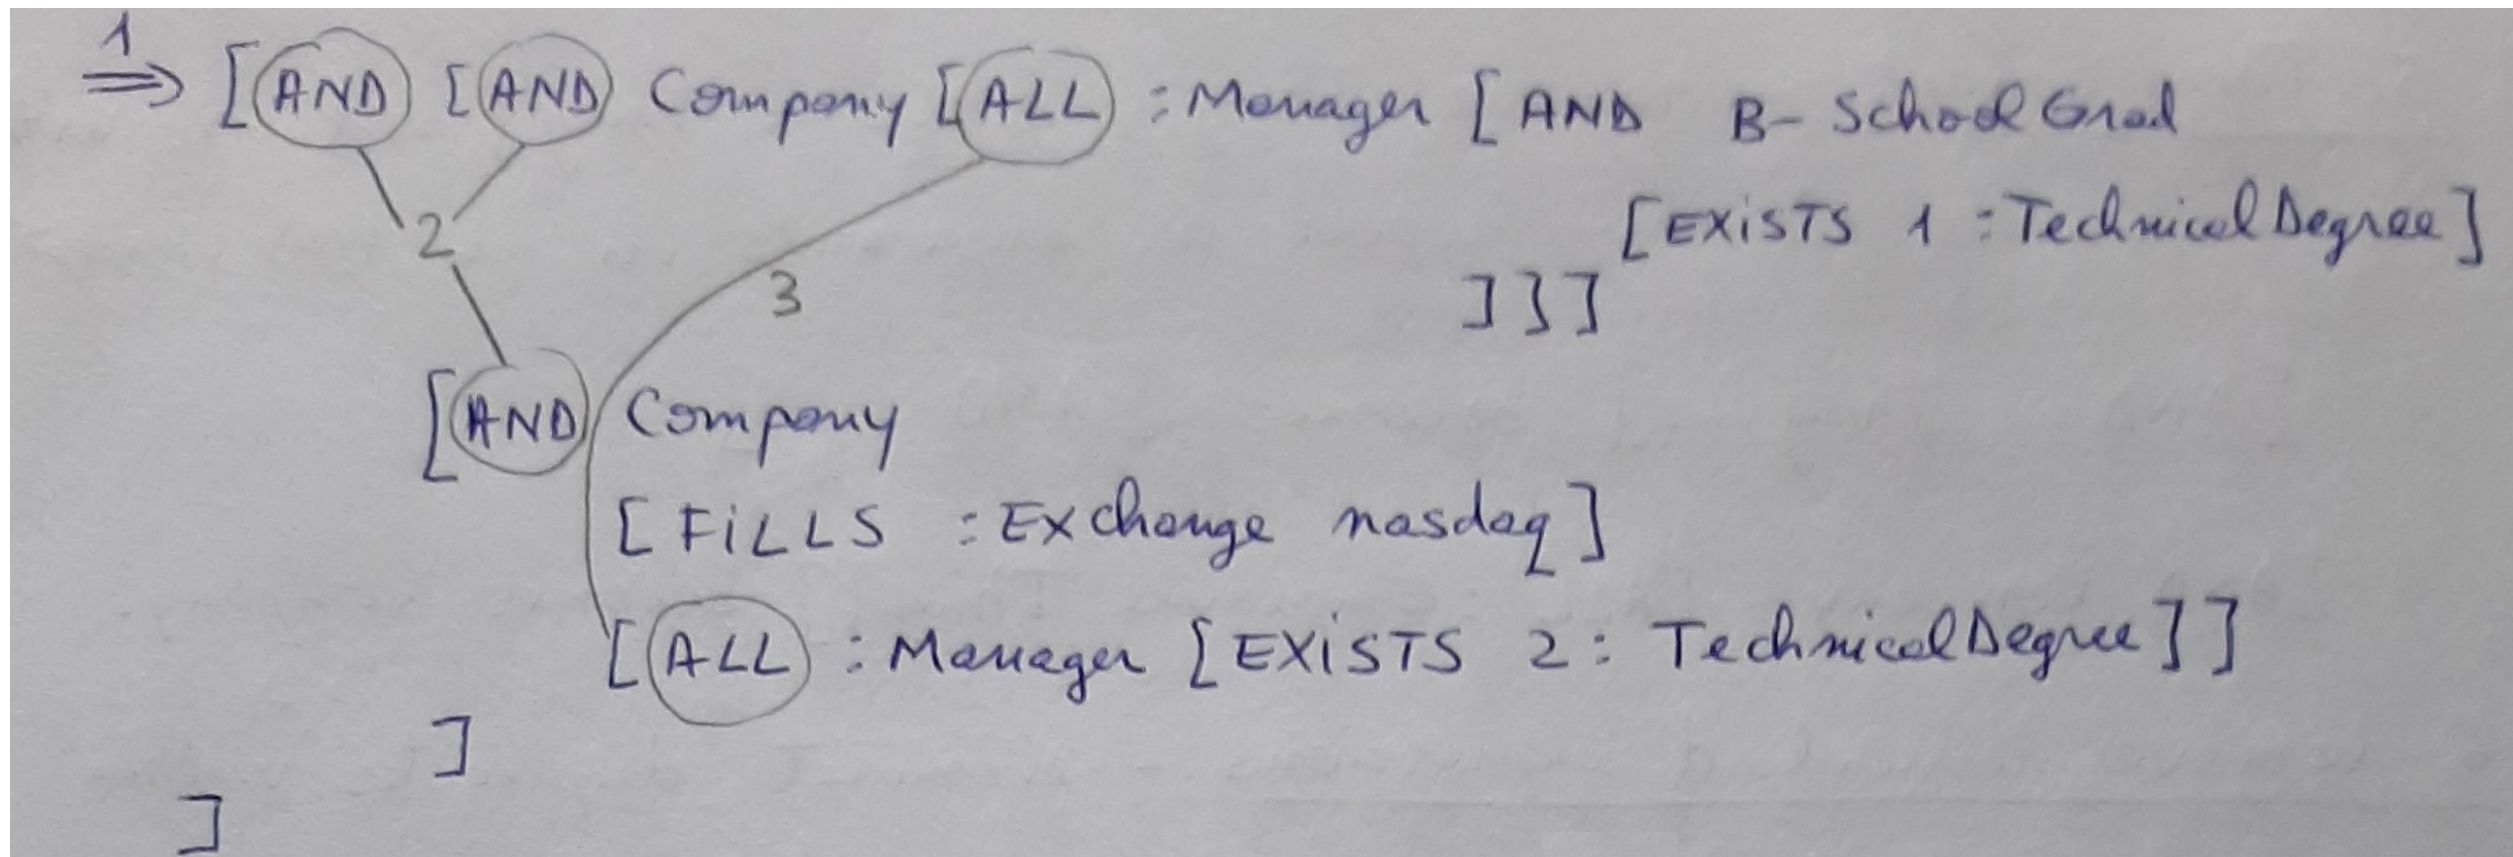 1
⇒ [AND [AND Company [ALL :Manager [AND B-SchoolGrad
[EXiSTS 1 :TechnicalDegree]
2
3
]]]
[AND Company
[FiLLS :Exchange nasdaq]
[ALL :Manager [EXiSTS 2: TechnicalDegree]]
]
]